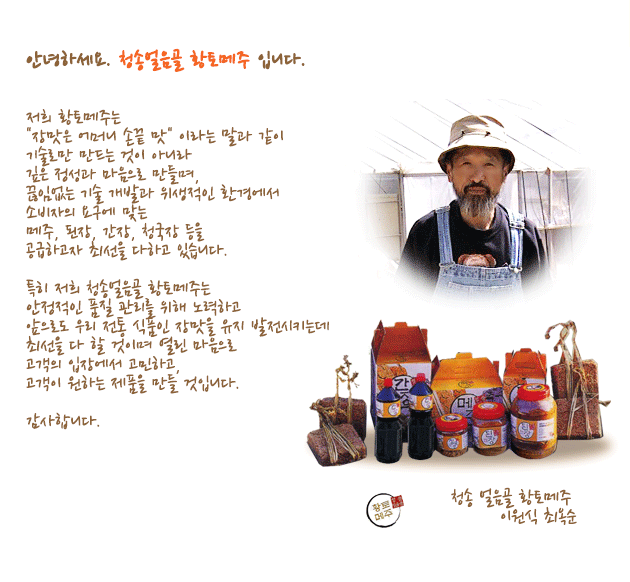 안녕하세요. 청송얼음골 황토메주 입니다.
저희 황토메주는
"장맛은 어머니 손끝 맛" 이라는 말과 같이
기술로만 만드는 것이 아니라
깊은 정성과 마음으로 만들며,
끊임없는 기술 개발과 위생적인 환경에서
소비자의 요구에 맞는
메주, 된장, 간장, 청국장 등을
공급하고자 최선을 다하고 있습니다.
특히 저희 청송얼음골 황토메주는
안정적인 품질 관리를 위해 노력하고
앞으로도 우리 전통 식품인 장맛을 유지 발전시키는데
최선을 다 할 것이며 열린 마음으로
고객의 입장에서 고민하고,
고객이 원하는 제품을 만들 것입니다.
감사합니다.
간장
메주
된장
황토
메주
청송 얼음골 황토메주
이원식 최옥순